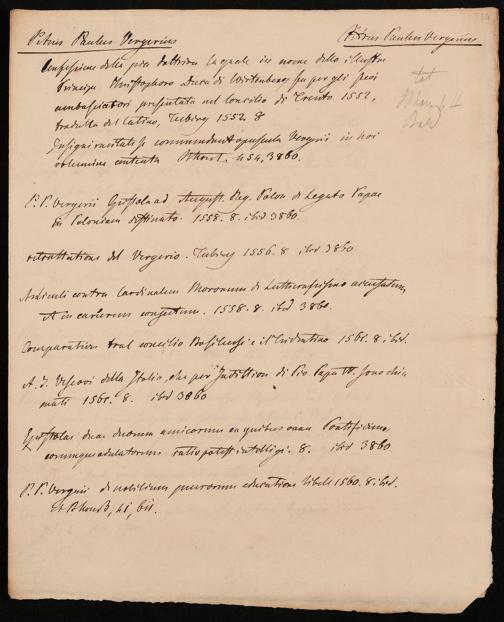 Petrus Paulus Vergerius Petrus Paulus Vergerius
Confessione della pia dottrina la quale in nome dello illustre
Principe Christophoro Duca di Wirtenberg fu per gli suoi
ambasciatori presentata nel Concilio di Trento 1552,
tradutta del latino, Tubing 1552. 8
Insigni raritate se commendant opuscula Vergerii in hoc
volumine contenta 454, 3860.
P. P. Vergerii Epistola ad August. Reg. Polon de Legato Papae
in Poloniam destinato. 1558. 8. ibid 3860.
retrattatione del Vergerio. Tubing 1556. 8 ibid 3860
Articuli contra Cardinalem Moronum de Lutheranismo accusatum,
et in carcerem conjectum. 1558. 8. ibid 3860.
Comparation tral concilio Basiliense e il Tridentino 1561. 8. ibid.
A. i. Vescovi della Italia, che per di Pio Papa
1561. 8. ibid 3860
Epistolae duae duorum amicorum ex quibus vana Pontificum,
eorumque adulatorum ratio potest intelligi. 8. ibid 3860
P. P. Vergerii de nobilium puerorum educatione libell 1560. 8. ibid.